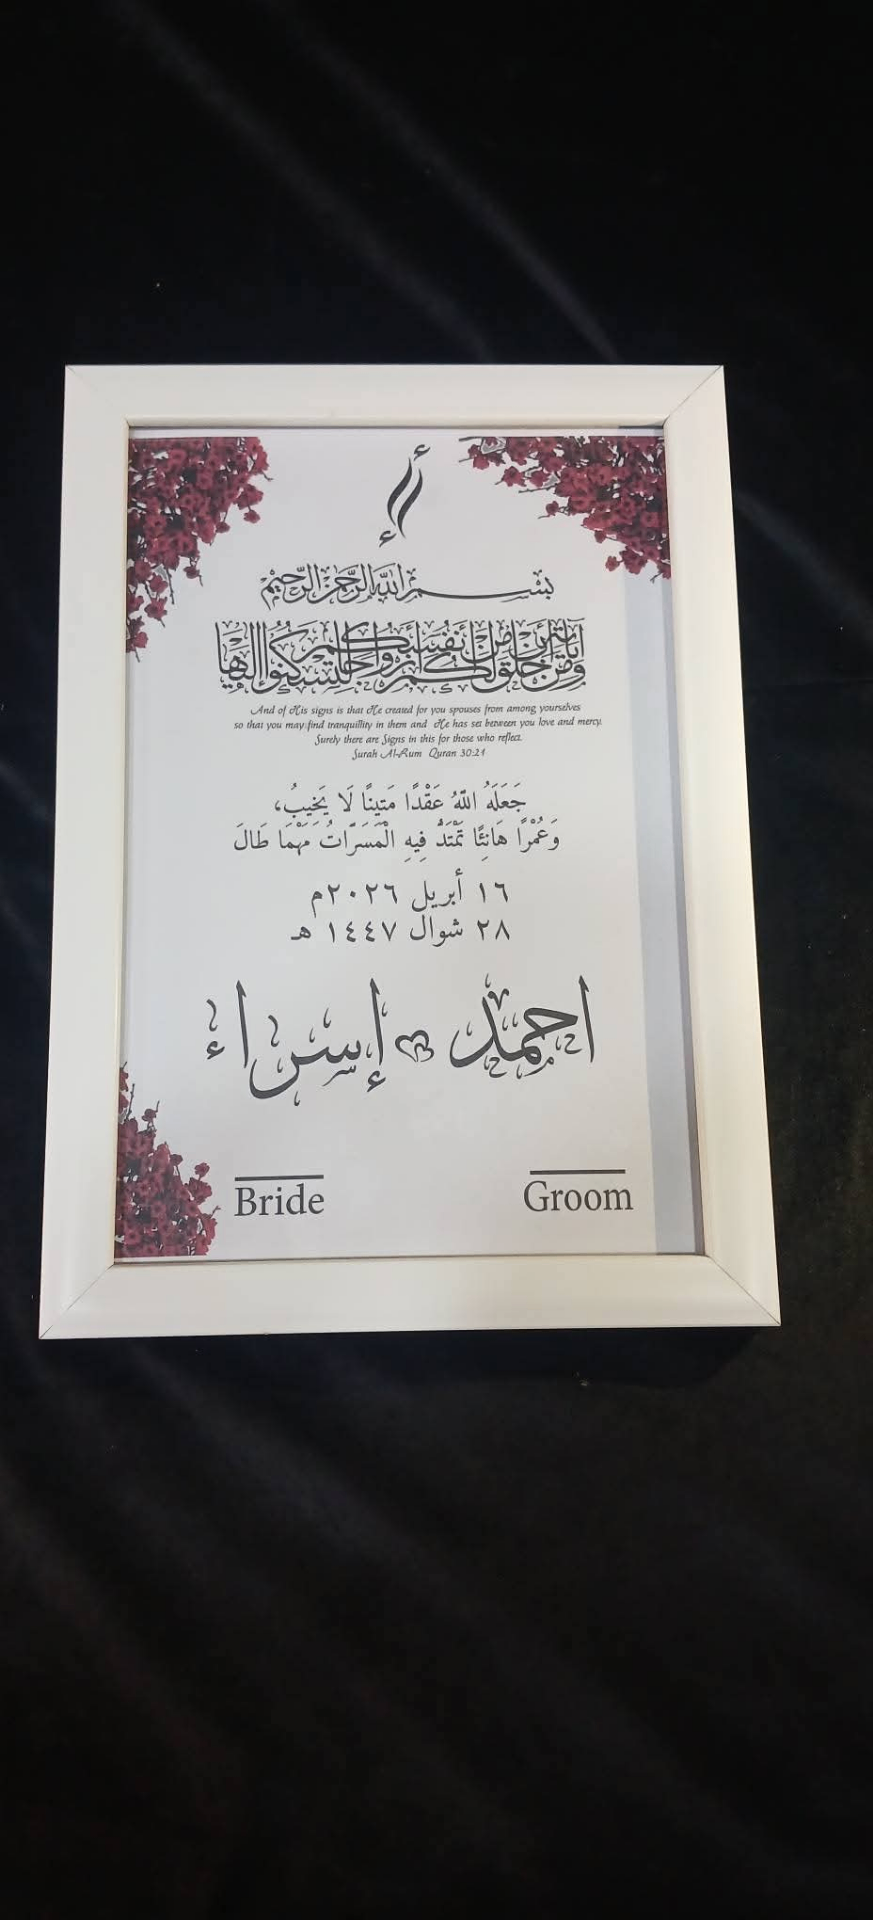 أ إ
بسم الله الرحمن الرحيم
ومن آياته أن خلق لكم من أنفسكم أزواجا لتسكنوا إليها
And of His signs is that He created for you spouses from among yourselves
so that you may find tranquillity in them and He has set between you love and mercy.
Surely there are Signs in this for those who reflect.
Surah Al-Rum Quran 30:21
جَعَلَهُ اللّهُ عَقْدًا مَتِينًا لَا يَخِيبُ،
وَعُمْرًا هَانِئًا تَمْتَدُّ فِيهِ الْمَسَرَّاتُ مَهْمَا طَالَ
١٦ أبريل ٢٠٢٦م
٢٨ شوال ١٤٤٧ هـ
احمد إسراء
Bride Groom